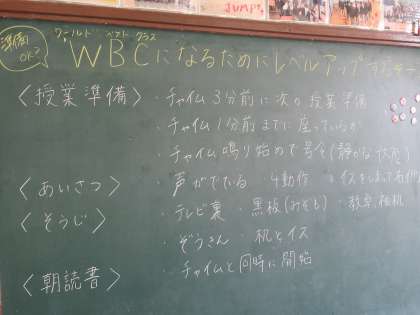 JUMP!
準備OK?
ワールド ベスト クラス
WBCになるためにレベルアップする
〈授業準備〉 ・チャイム3分前に次の授業準備
・チャイム1分前までに座っているか
・チャイム鳴り始めで号令(静かな状態)
〈あいさつ〉 ・声がでている ・4動作 ・イスをしまって
〈そうじ〉 ・テレビ裏 ・黒板(みぞも) ・教卓
・ぞうきん ・机とイス
〈朝読書〉 ・チャイムと同時に開始